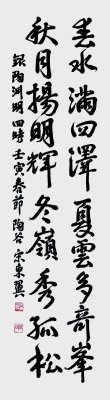 春水滿四澤夏雲多奇峯
秋月揚明輝冬嶺秀孤松
錄陶淵明四時 壬寅春節 陶谷 宗東翼